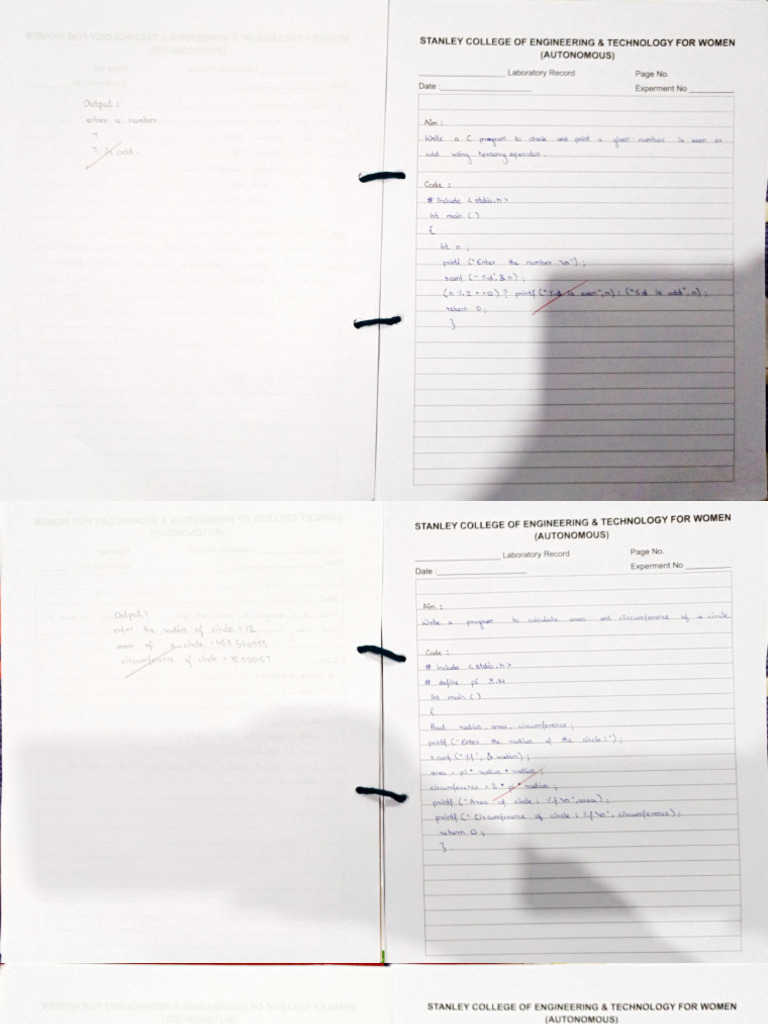 Output :
enter a number
7
7 is odd.
STANLEY COLLEGE OF ENGINEERING & TECHNOLOGY FOR WOMEN
(AUTONOMOUS)
Laboratory Record Page No.
Date : Experment No
Aim :
Write a C program to check and print a given number is even or
odd using ternary operator.
Code :
# include <stdio.h>
int main ( )
{
int n ;
printf ("Enter the number \n") ;
scanf ("%d", & n) ;
(n % 2 = = 0) ? printf ("%d is even", n) : ("%d is odd", n) ;
return 0 ;
}
Output :
enter the radius of circle = 12
area of a circle =
circumference of circle =
STANLEY COLLEGE OF ENGINEERING & TECHNOLOGY FOR WOMEN
(AUTONOMOUS)
Laboratory Record Page No.
Date : Experment No
Aim :
Write a program to calculate area and circumference of a circle
Code :
# include <stdio.h>
# define pi 3.14
int main ( )
{
float radius, area, circumference ;
printf ("Enter the radius of the circle : ") ;
scanf ("%f", & radius) ;
area = pi * radius * radius ;
circumference = 2 * pi * radius ;
printf ("Area of circle : %f \n", area) ;
printf (" Circumference of circle : %f \n", circumference) ;
return 0 ;
}
STANLEY COLLEGE OF ENGINEERING & TECHNOLOGY FOR WOMEN
(AUTONOMOUS)